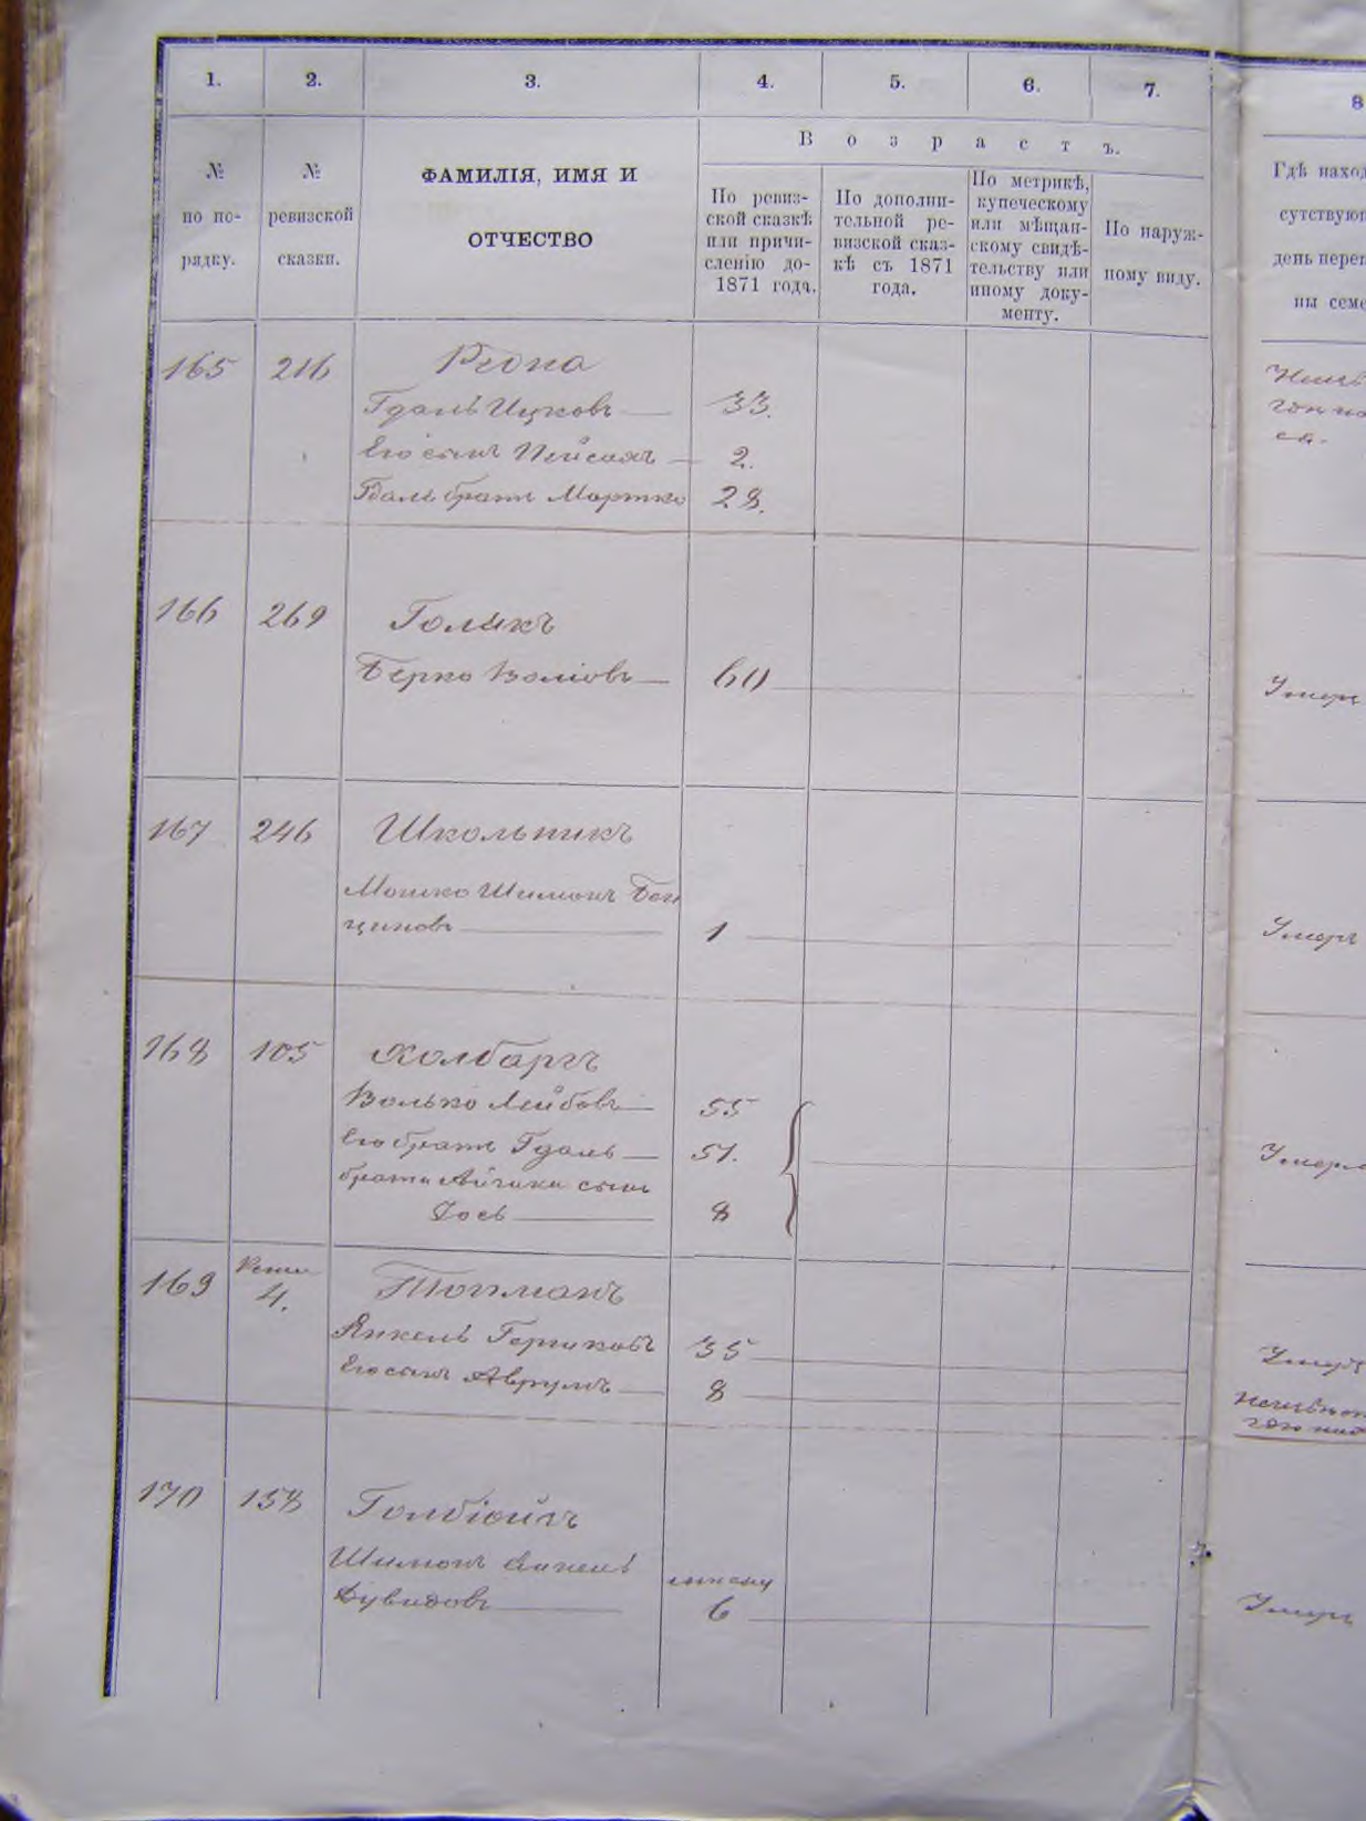 1. 2. 3. 4. 5. 6. 7. 8
№ по по-рядку.
№ ревизской сказки.
ФАМИЛІЯ, ИМЯ И
ОТЧЕСТВО
Возрастъ.
По ревиз-
ской сказкѣ
или причи-
сленію до-
1871 года.
По дополни-
тельной ре-
визской сказ-
кѣ съ 1871
года.
По метрикѣ,
купеческому
или мѣщан-
скому свидѣ-
тельству или
иному доку-
менту.
По наруж-
ному виду.
Гдѣ наход
сутствую
день переп
ны семе
165 216
Гдаль Ицковъ 33.
Его сынъ Пейсахъ 2.
Гдаля братъ Мортко 28.
166 269 Голикъ
Берко Волковъ 60
Умер
167 246 Школьникъ
Мошко Шимонъ Бен
ціновъ 1
Умеръ
168 105 Холбаргъ
Волько Лейбовъ 55
Его братъ Гдаль 51.
брата Айзика сынъ
Іось 8
Умерл
169 4. Топманъ
Янкель Гершковъ 35
Его сынъ Аврумъ 8
170 158
Шимонъ Янкель
Дувидовъ 6
Умеръ